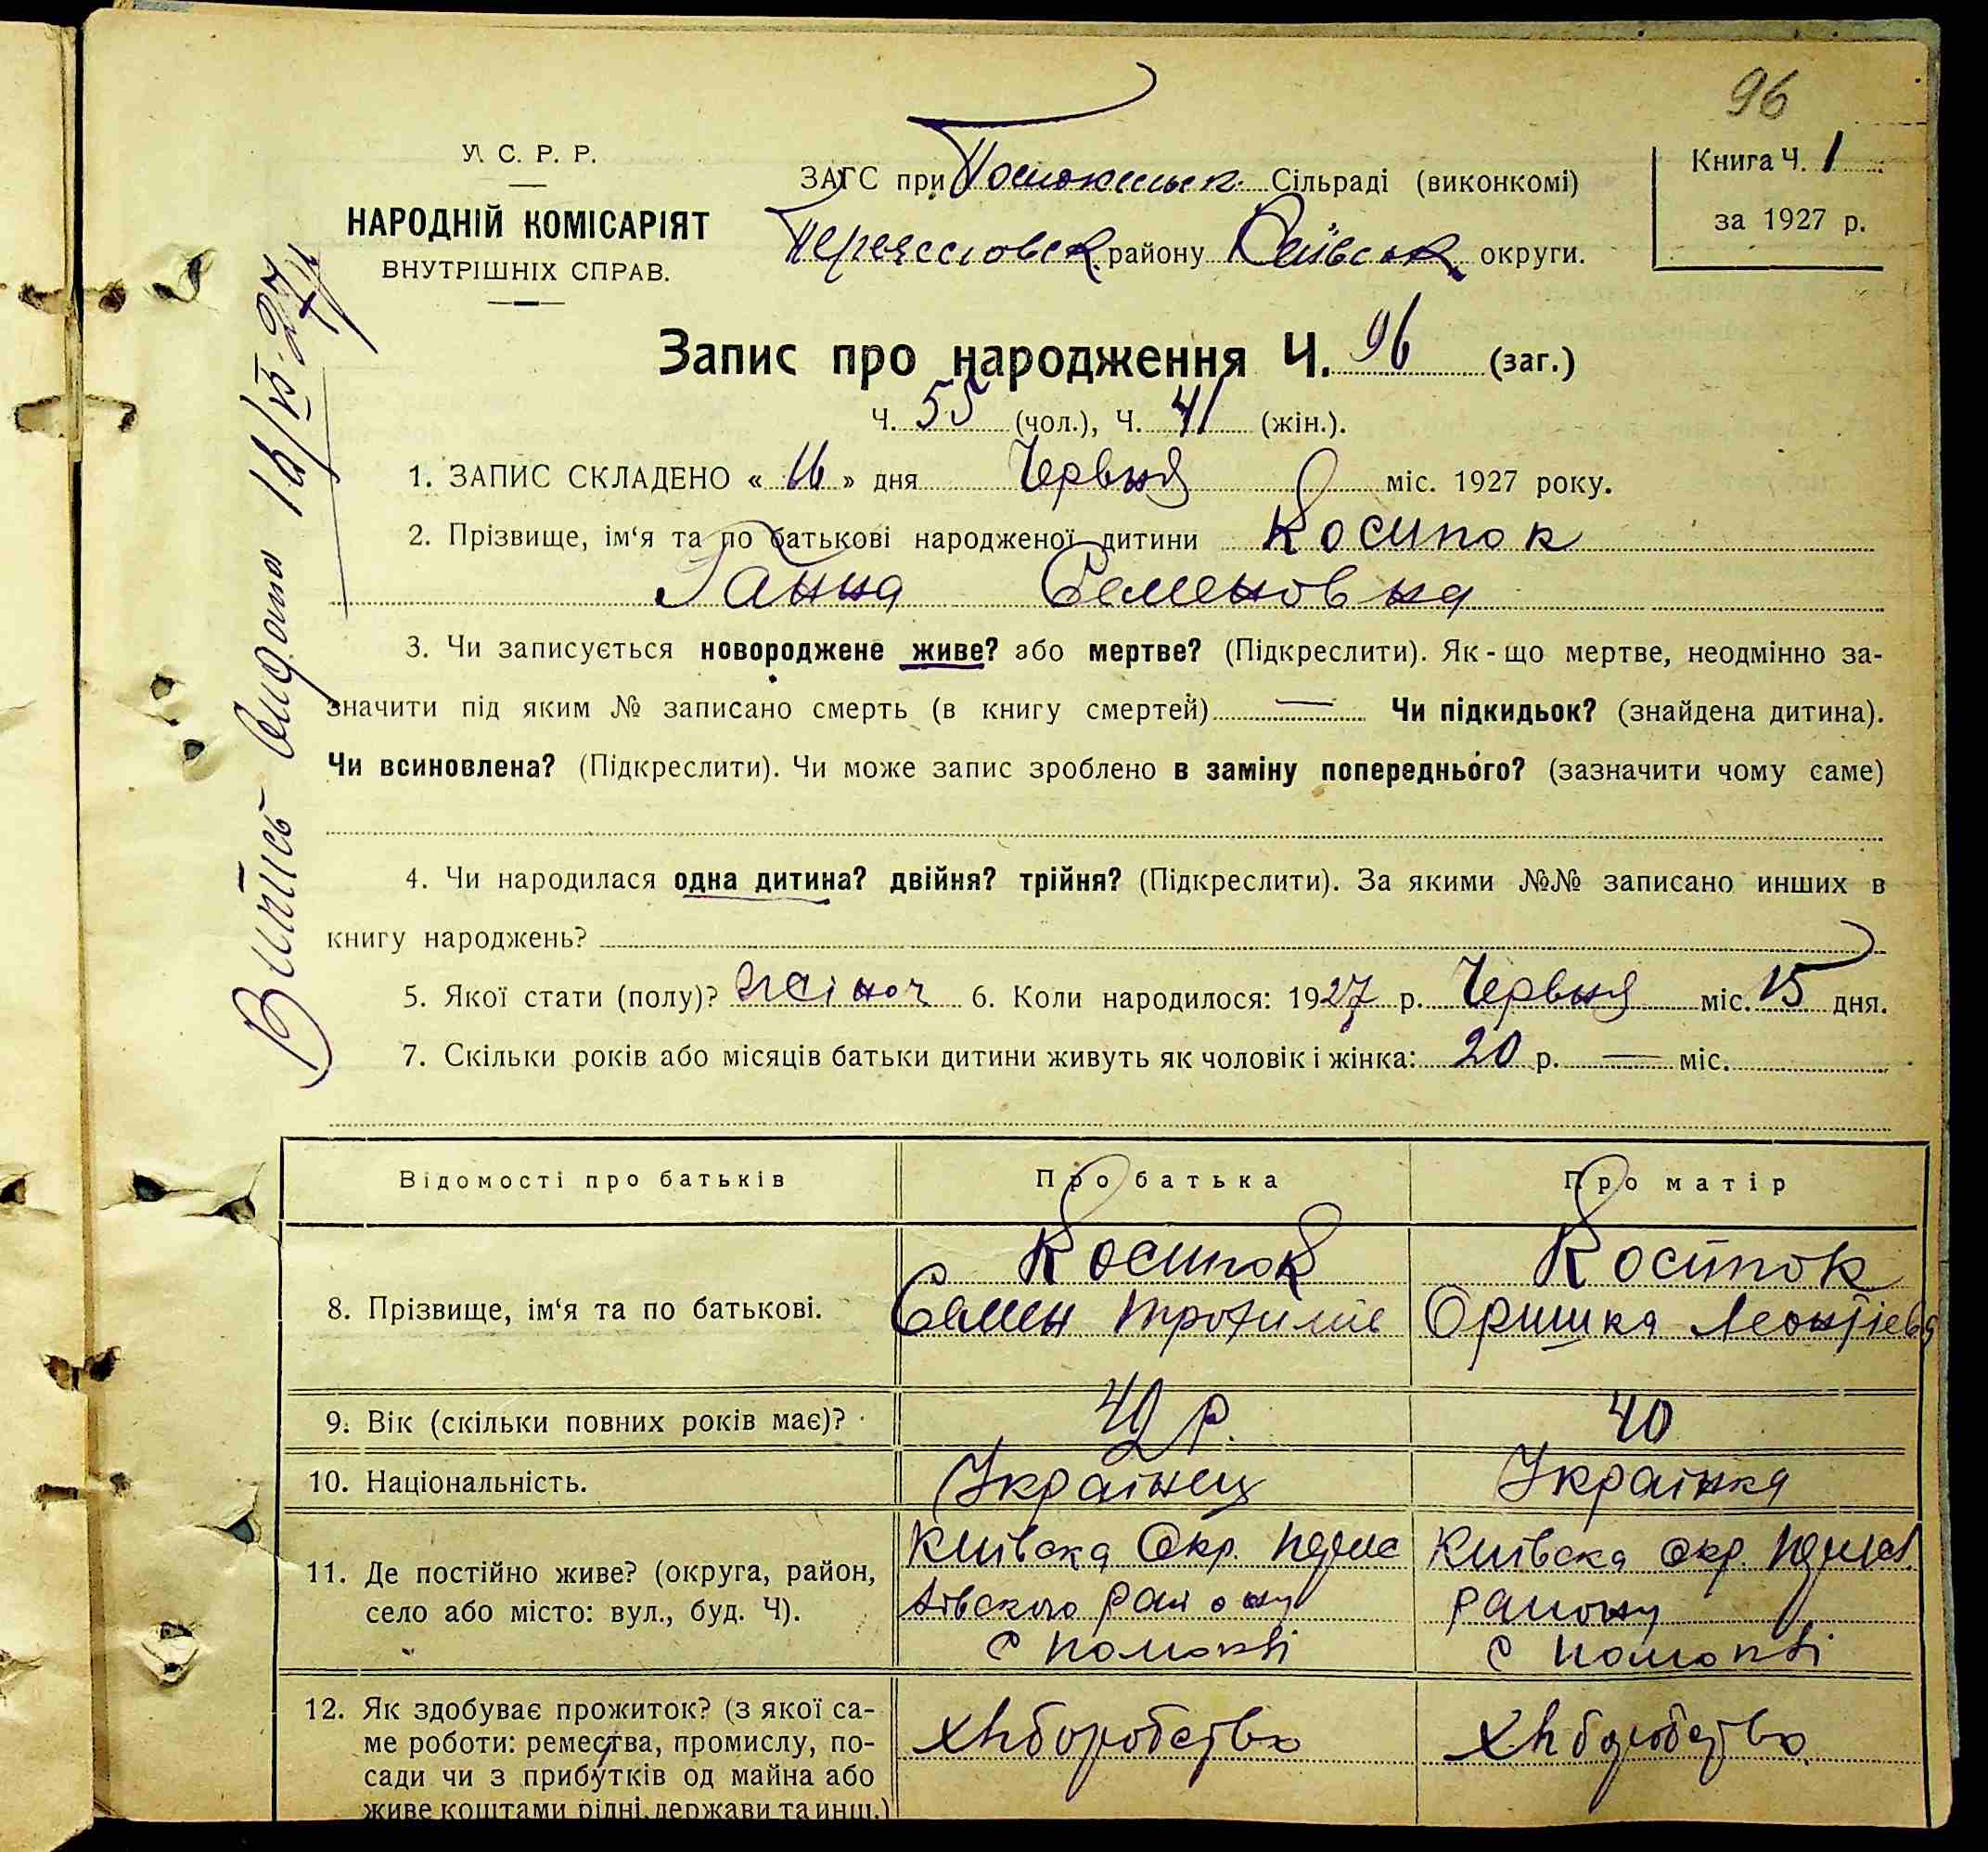 96
У. С. Р. Р.
НАРОДНІЙ КОМІСАРІЯТ
ВНУТРІШНІХ СПРАВ.
ЗАГС при Сільраді (виконкомі)
району Київськ округи.
Книга Ч. 1
за 1927 р.
Запис про народження Ч. 96 (заг.)
Ч. 55 (чол.), Ч. 41 (жін.).
1. ЗАПИС СКЛАДЕНО « 16 » дня Червня міс. 1927 року.
2. Прізвище, ім‘я та по батькові народженої дитини Косинок
Ганна Семеновна
3. Чи записується новороджене живе? або мертве? (Підкреслити). Як-що мертве, неодмінно за-
значити під яким № записано смерть (в книгу смертей) — Чи підкидьок? (знайдена дитина).
Чи всиновлена? (Підкреслити). Чи може запис зроблено в заміну попереднього? (зазначити чому саме)
4. Чи народилася одна дитина? двійня? трійня? (Підкреслити). За якими №№ записано инших в
книгу народжень?
5. Якої стати (полу)? жіноч 6. Коли народилося: 1927 р. Червня міс. 15 дня.
7. Скільки років або місяців батьки дитини живуть як чоловік і жінка: 20 р. — міс.
Випись видана 16/VI-27
Відомості про батьків Про батька Про матір
8. Прізвище, ім‘я та по батькові.
Косинок
Семен Трохимів
Косинок
Оришка Леонтіева
9. Вік (скільки повних років має)? р. 40
10. Національність. Украінец Украінка
11. Де постійно живе? (округа, район,
село або місто: вул., буд. Ч).
Київска Окр.
району
с
Київска Окр.
району
с
12. Як здобуває прожиток? (з якої са-
ме роботи: ремества, промислу, по-
сади чи з прибутків од майна або
живе коштами рідні, держави та инш.)
хліборобство
хліборобство